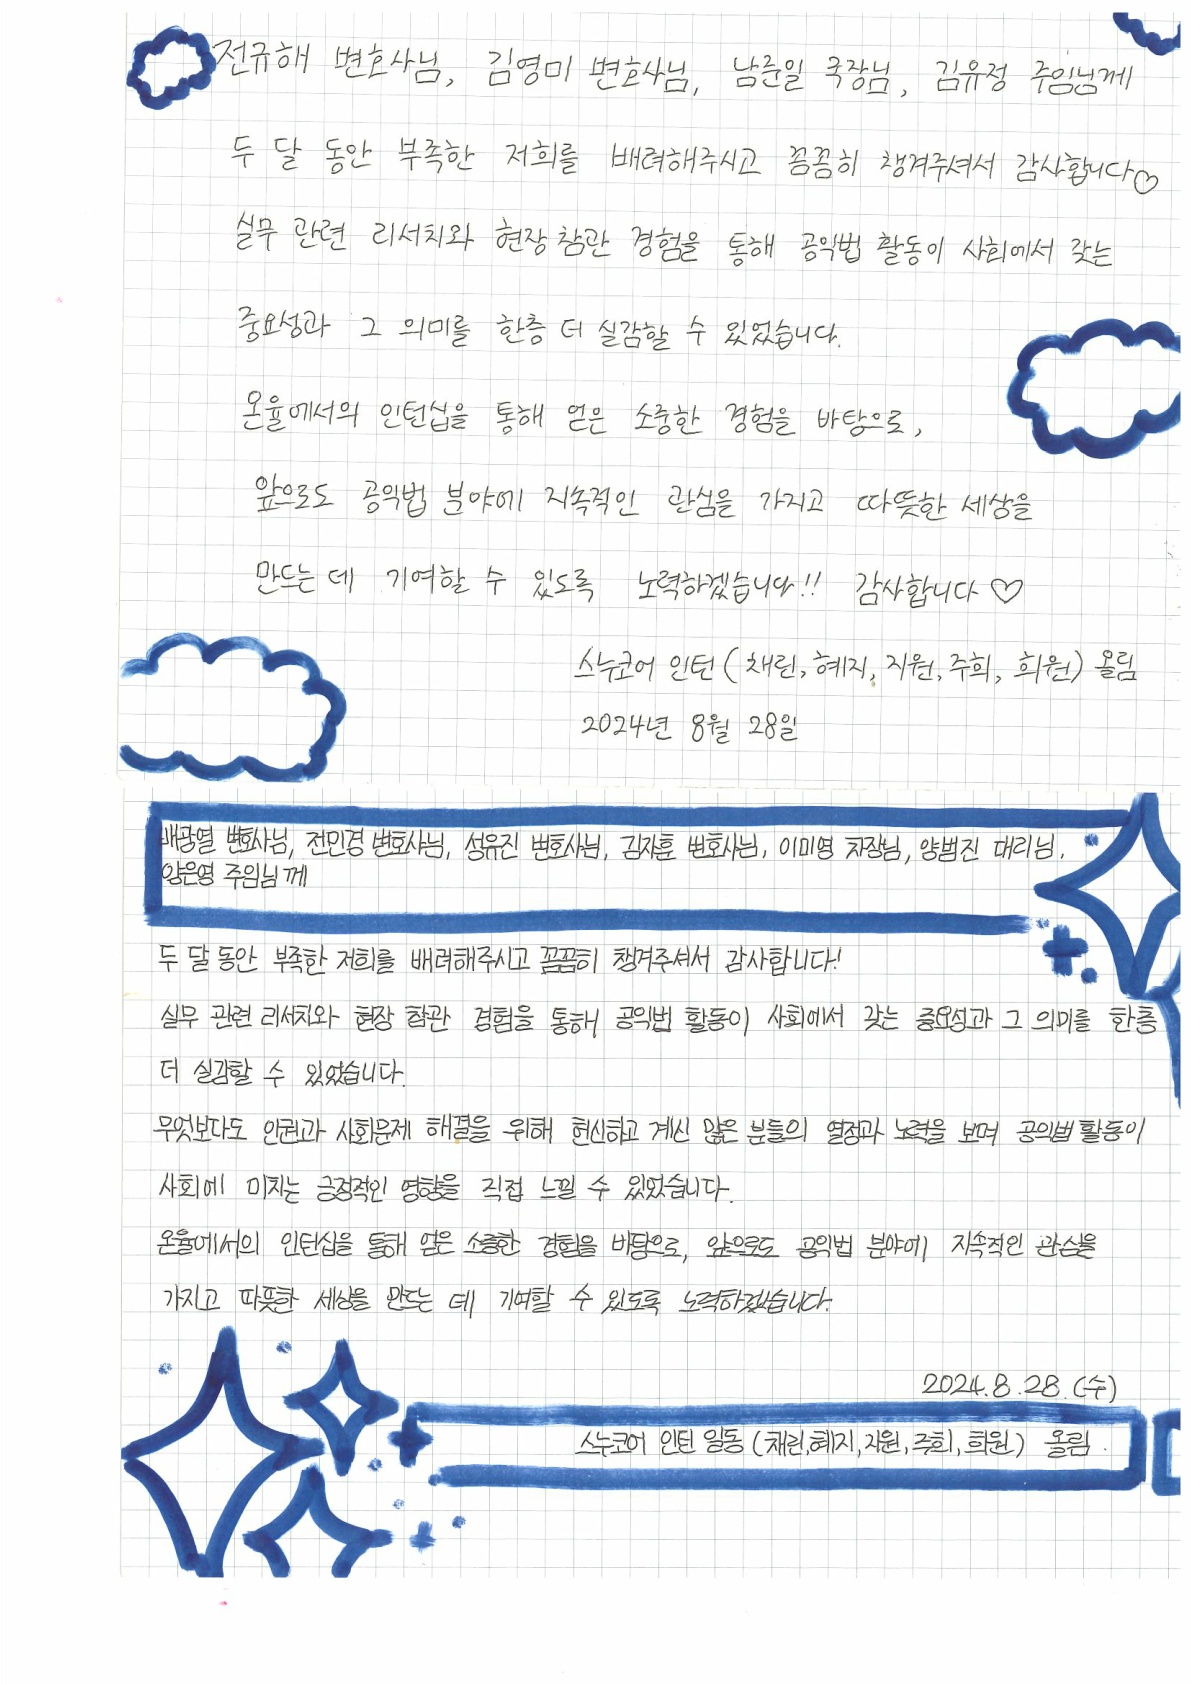 전규해 변호사님, 김영미 변호사님, 남준일 국장님, 김유정 주임님께
두 달 동안 부족한 저희를 배려해주시고 꼼꼼히 챙겨주셔서 감사합니다♡
실무 관련 리서치와 현장 참관 경험을 통해 공익법 활동이 사회에서 갖는
중요성과 그 의미를 한층 더 실감할 수 있었습니다.
온율에서의 인턴십을 통해 얻은 소중한 경험을 바탕으로,
앞으로도 공익법 분야에 지속적인 관심을 가지고 따뜻한 세상을
만드는 데 기여할 수 있도록 노력하겠습니다!! 감사합니다♡
스누코어 인턴(채린, 혜지, 지원, 주희, 희원) 올림
2024년 8월 28일
배광열 변호사님, 전민경 변호사님, 성유진 변호사님, 김자훈 변호사님, 이미영 차장님, 양범진 대리님,
양은영 주임님께
두 달 동안 부족한 저희를 배려해주시고 꼼꼼히 챙겨주셔서 감사합니다!
실무 관련 리서치와 현장 참관 경험을 통해 공익법 활동이 사회에서 갖는 중요성과 그 의미를 한층
더 실감할 수 있었습니다.
무엇보다도 인권과 사회문제 해결을 위해 헌신하고 계신 많은 분들의 열정과 노력을 보며 공익법 활동이
사회에 미치는 긍정적인 영향을 직접 느낄 수 있었습니다.
온율에서의 인턴십을 통해 얻은 소중한 경험을 바탕으로, 앞으로도 공익법 분야에 지속적인 관심을
가지고 따뜻한 세상을 만드는 데 기여할 수 있도록 노력하겠습니다.
2024.8.28.(수)
스누코어 인턴 일동(채린,혜지,지원,주희,희원) 올림.